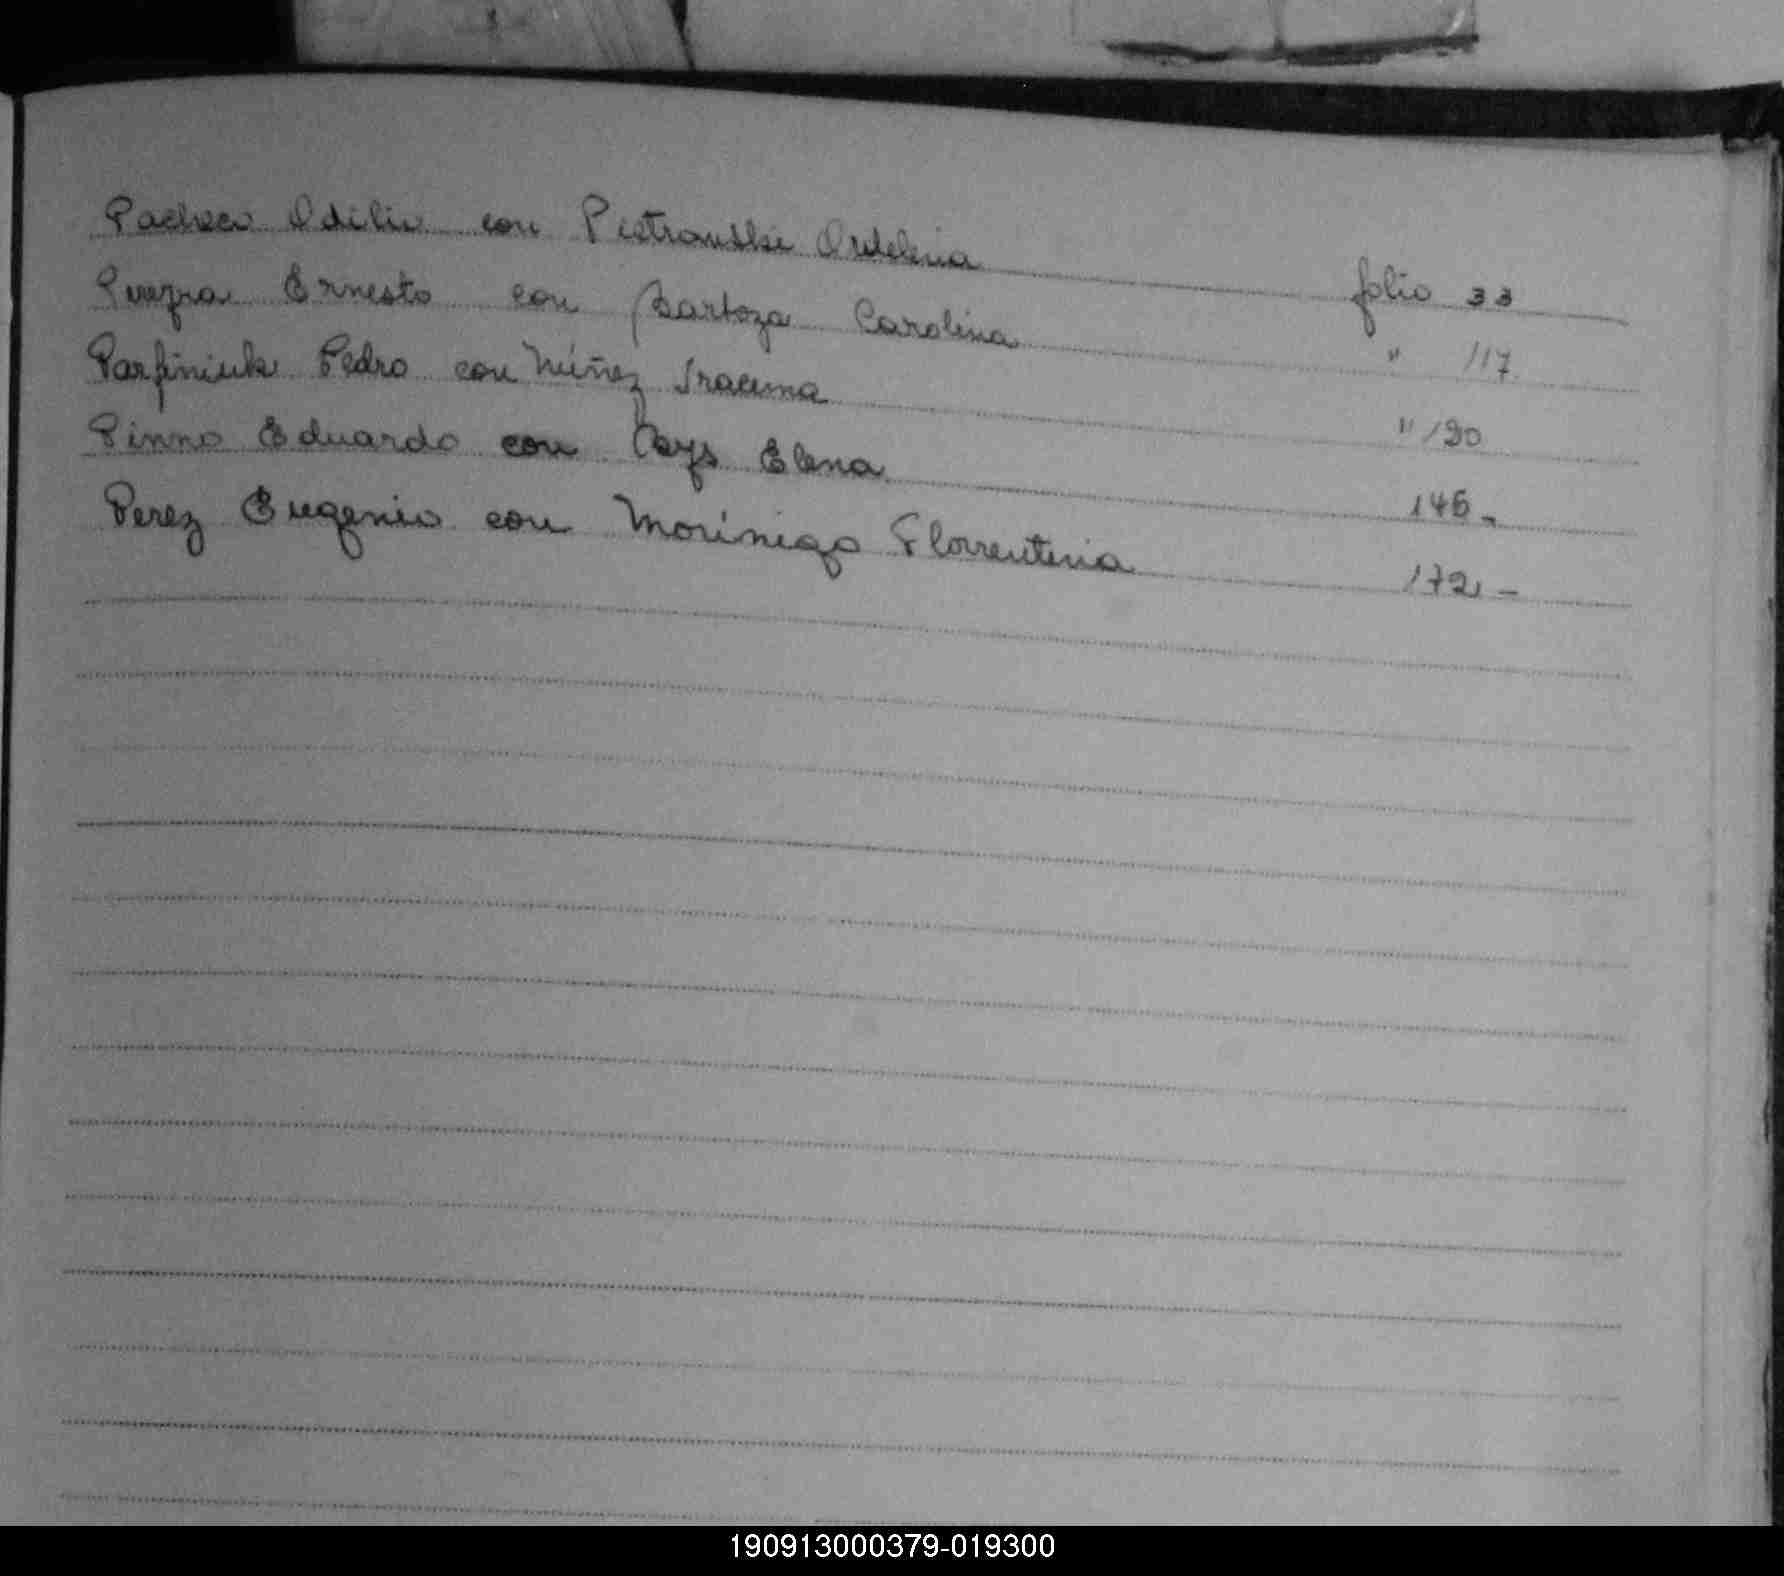 Pacheco Odilio con Pietrouski Ordelina folio 33
Ernesto con Bartoza Carolina " 117
Parfiniuk Pedro con Núñez Iracema " 120
Pinno Eduardo con Elena 146-
Perez Eugenio con Morínigo Florrentina 172-
190913000379-019300